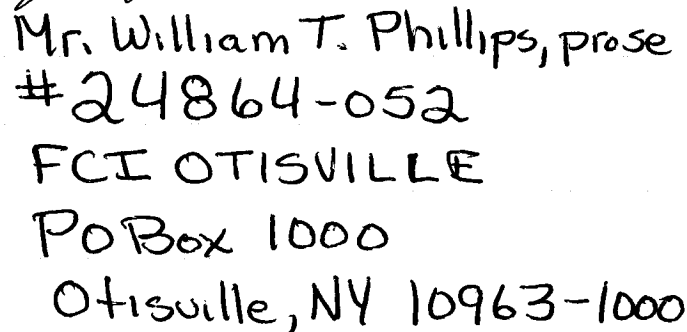 Mr. William T. Phillips, prose
#24864-052
FCI OTISVILLE
PO Box 1000
Otisville, NY 10963-1000